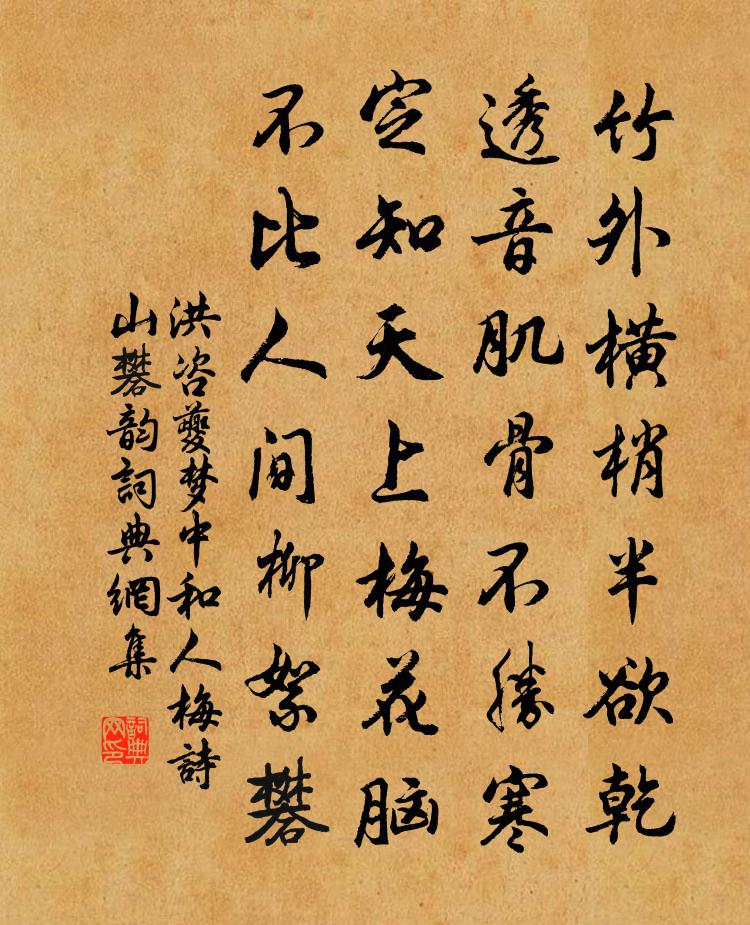 竹外橫梢半欲乾
透音肌骨不勝寒
定知天上梅花脑
不比人间柳絮礬
洪咨夔梦中和人梅詩
山礬韵詞典網集
詞典
网印